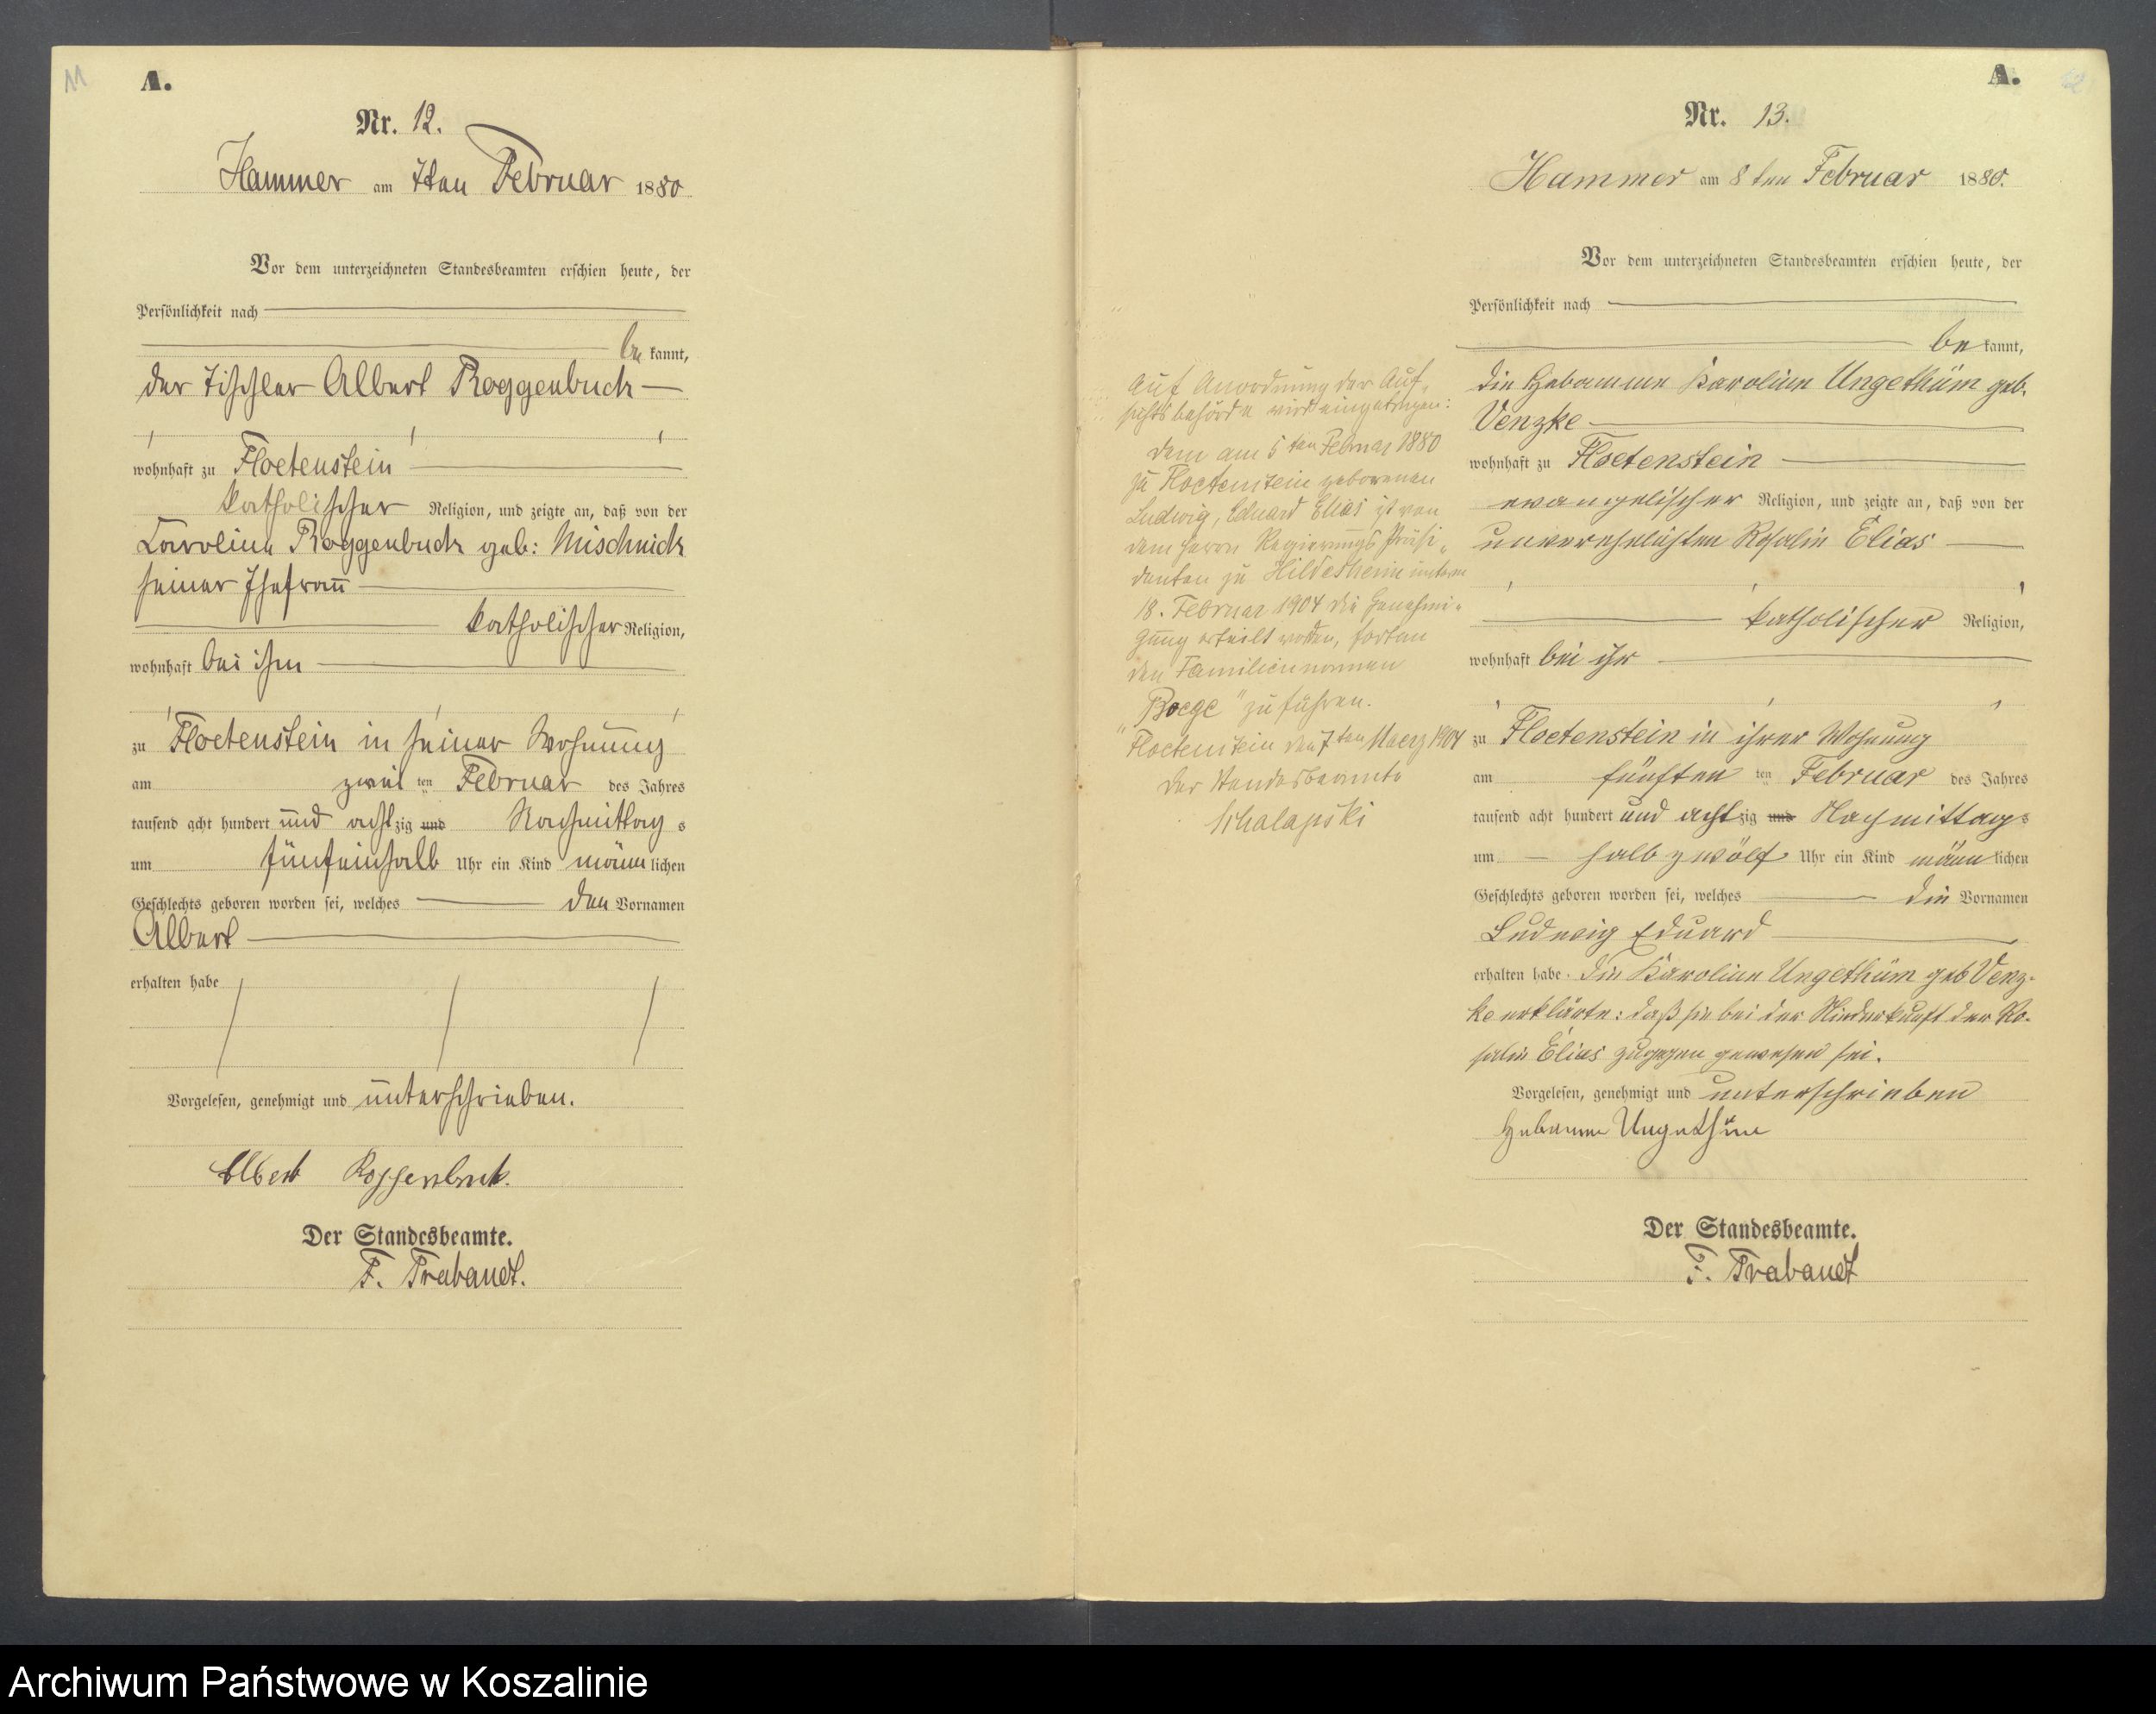 A.
Nr. 12.
Hammer am 7ten Februar 1880
Vor dem unterzeichneten Standesbeamten erschien heute, der
Persönlichkeit nach
be kannt,
der Tischler Albert Roggenbuck
wohnhaft zu Floetenstein
katholischer Religion, und zeigte an, daß von der
Caroline Roggenbuck geb: Mischnick
seiner Ehefrau
katholischer Religion,
wohnhaft bei ihm
zu Floetenstein in seiner Wohnung
am zwei ten Februar des Jahres
tausend acht hundert und acht zig und Nachmittag s
um fünfeinhalb Uhr ein Kind männ lichen
Geschlechts geboren worden sei, welches den Vornamen
Albert
erhalten habe
Vorgelesen, genehmigt und unterschrieben.
Albert Roggenbuck.
Der Standesbeamte.
F. Trabandt.
Auf Anordnung der Auf-
sichtsbehörde wird eingetragen:
Dem am 5ten Februar 1880
zu Floetenstein geborenen
Ludwig, Eduard Elias ist von
dem Herrn Regierungs Präsi-
denten zu Hildesheim unterm
18. Februar 1904 die Genehmi-
gung erteilt worden, fortan
den Familiennamen
"Boege" zu führen.
Floetenstein den 7ten Maerz 1904
Der Standesbeamte
A.
Nr. 13.
Hammer am 8ten Februar 1880.
Vor dem unterzeichneten Standesbeamten erschien heute, der
Persönlichkeit nach
be kannt,
die Hebamme Karoline Ungethüm geb.
Venzke
wohnhaft zu Floetenstein
evangelischer Religion, und zeigte an, daß von der
unverehelichten Rosalie Elias
katholischer Religion,
wohnhaft bei ihr
zu Floetenstein in ihrer Wohnung
am fünften ten Februar des Jahres
tausend acht hundert und acht zig und Nachmittags
um halb zwölf Uhr ein Kind männ lichen
Geschlechts geboren worden sei, welches die Vornamen
Ludwig Eduard
erhalten habe. Die Karoline Ungethüm geb Venz-
ke erklärte: daß sie bei der Niederkunft der Ro-
salie Elias zugegen gewesen sei.
Vorgelesen, genehmigt und unterschrieben
Hebamme Ungethüm
Der Standesbeamte.
F. Trabandt
Archiwum Państwowe w Koszalinie